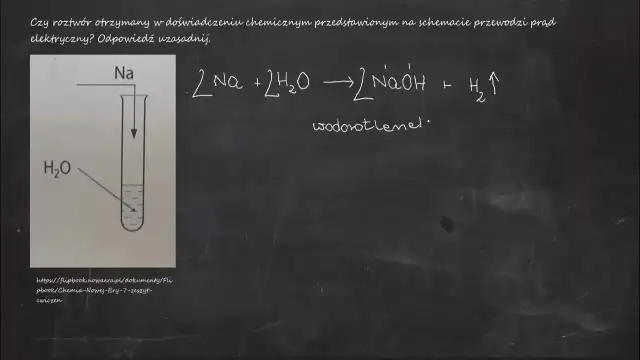 Czy roztwór otrzymany w doświadczeniu chemicznym przedstawionym na schemacie przewodzi prąd
elektryczny? Odpowiedź uzasadnij.
Na
2Na + 2H₂O → 2NaOH + H₂↑
wodorotlenek
H₂O
https://flipbook.nowaera.pl/dokumenty/Fli
pbook/Chemia-Nowej-Ery-7-zeszyt-
cwiczen